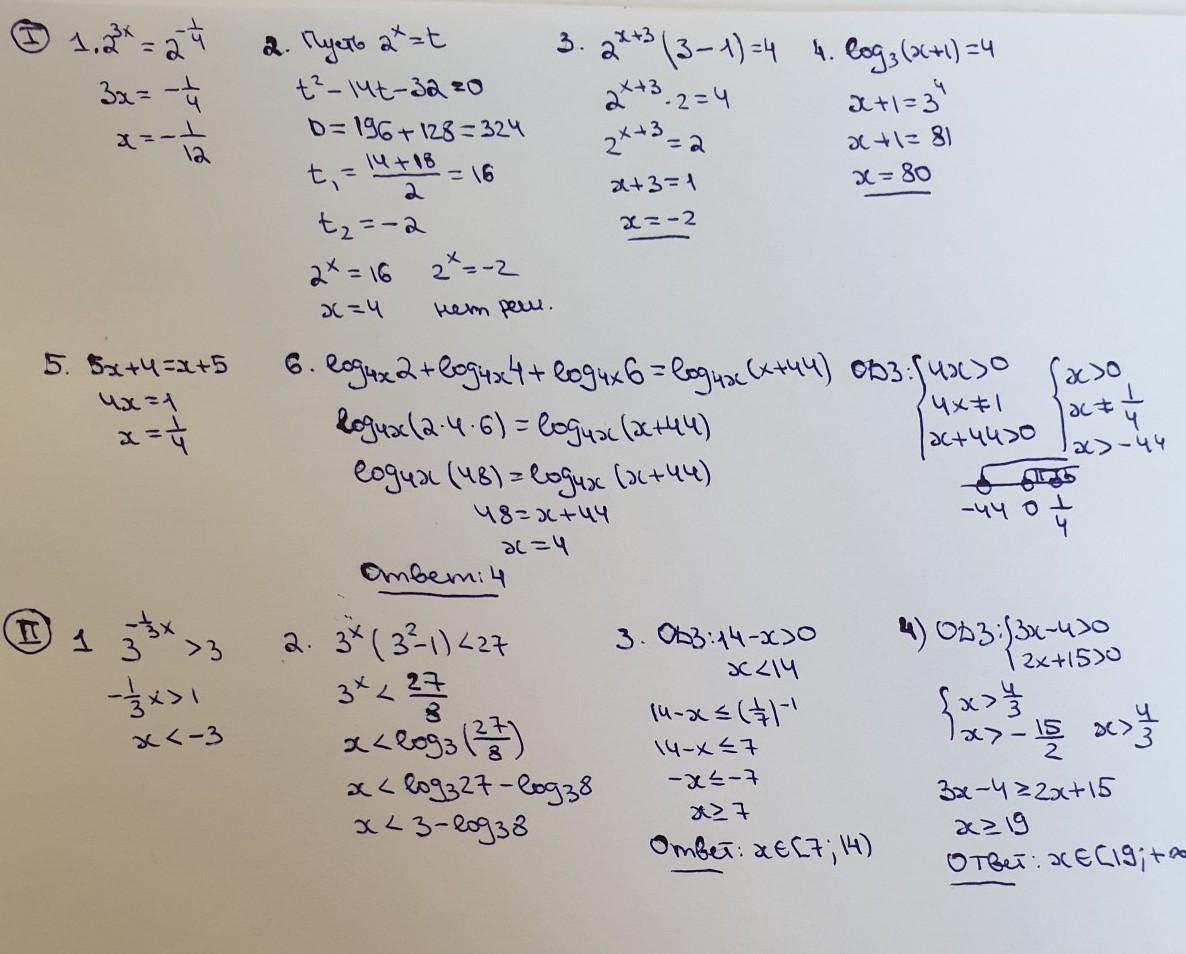 I
1. 2^{3x} = 2^{-1/4}
3x = -1/4
x = -1/12
2. Пусть 2^x = t
t² - 14t - 32 = 0
D = 196 + 128 = 324
t₁ = (14+18)/2 = 16
t₂ = -2
2^x = 16 2^x = -2
x = 4 нет реш.
3. 2^{x+3} (3-1) = 4
2^{x+3} · 2 = 4
2^{x+3} = 2
x+3 = 1
x = -2
4. log₃(x+1) = 4
x+1 = 3⁴
x+1 = 81
x = 80
5. 5x+4 = x+5
4x = 1
x = 1/4
6. log_{4x} 2 + log_{4x} 4 + log_{4x} 6 = log_{4x} (x+44)
log_{4x} (2·4·6) = log_{4x} (x+44)
log_{4x} (48) = log_{4x} (x+44)
48 = x+44
x = 4
Ответ: 4
ОДЗ: { 4x > 0 { x > 0
4x ≠ 1 x ≠ 1/4
x+44 > 0 x > -44
-44 0 1/4
II
1 3^{-1/3 x} > 3
-1/3 x > 1
x < -3
2. 3^x (3² - 1) < 27
3^x < 27/8
x < log₃ (27/8)
x < log₃ 27 - log₃ 8
x < 3 - log₃ 8
3. ОДЗ: 14 - x > 0
x < 14
14 - x ≤ (1/7)^{-1}
14 - x ≤ 7
-x ≤ -7
x ≥ 7
Ответ: x ∈ [7; 14)
4) ОДЗ: { 3x - 4 > 0
2x + 15 > 0
{ x > 4/3
x > -15/2 x > 4/3
3x - 4 ≥ 2x + 15
x ≥ 19
Ответ: x ∈ [19; +∞